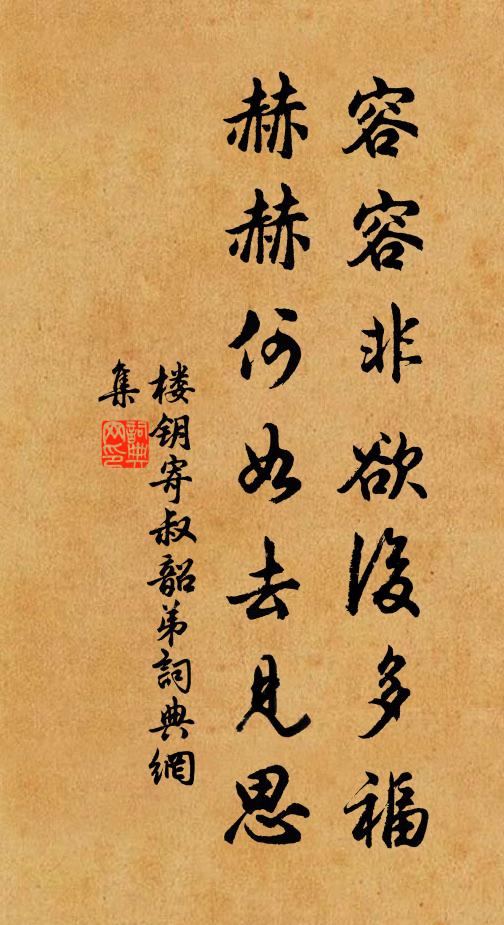 容容非欲後多福
赫赫何如去見思
楼钥寄叔韶弟詞典網
集
詞典網印